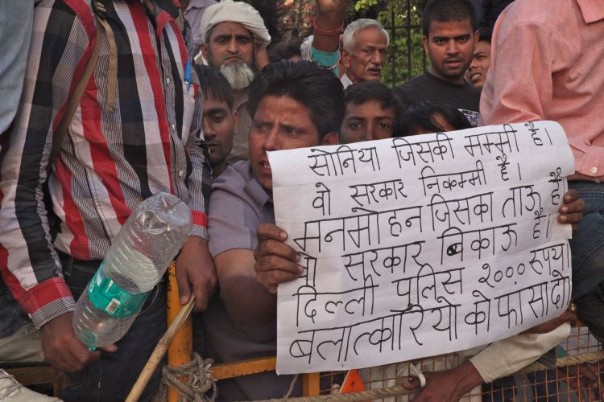 सोनिया जिसकी मम्मी है।
वो सरकार निकम्मी है।
मनमोहन जिसका ताऊ है
वो सरकार बिकाऊ है
दिल्ली पुलिस २००० रूपया
बलात्कारियो को फांसी दो।